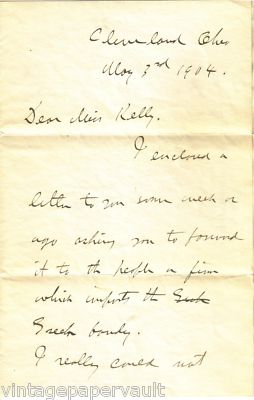 Cleveland Ohio
May 3rd 1904.
Dear Miss Kelly.
I enclosed a
letter to you some week or
ago asking you to forward
it to the people or firm
which imports the Greek
Greek
I really could not
vintagepapervault